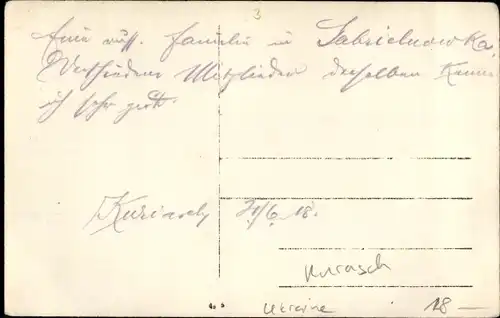 3
Eine russ. Familie in Gabrielnowka.
Verschiedene Mitglieder derselben kenne
ich sehr gut.
21/6.18.
Kurasch
Ukraine 18 —